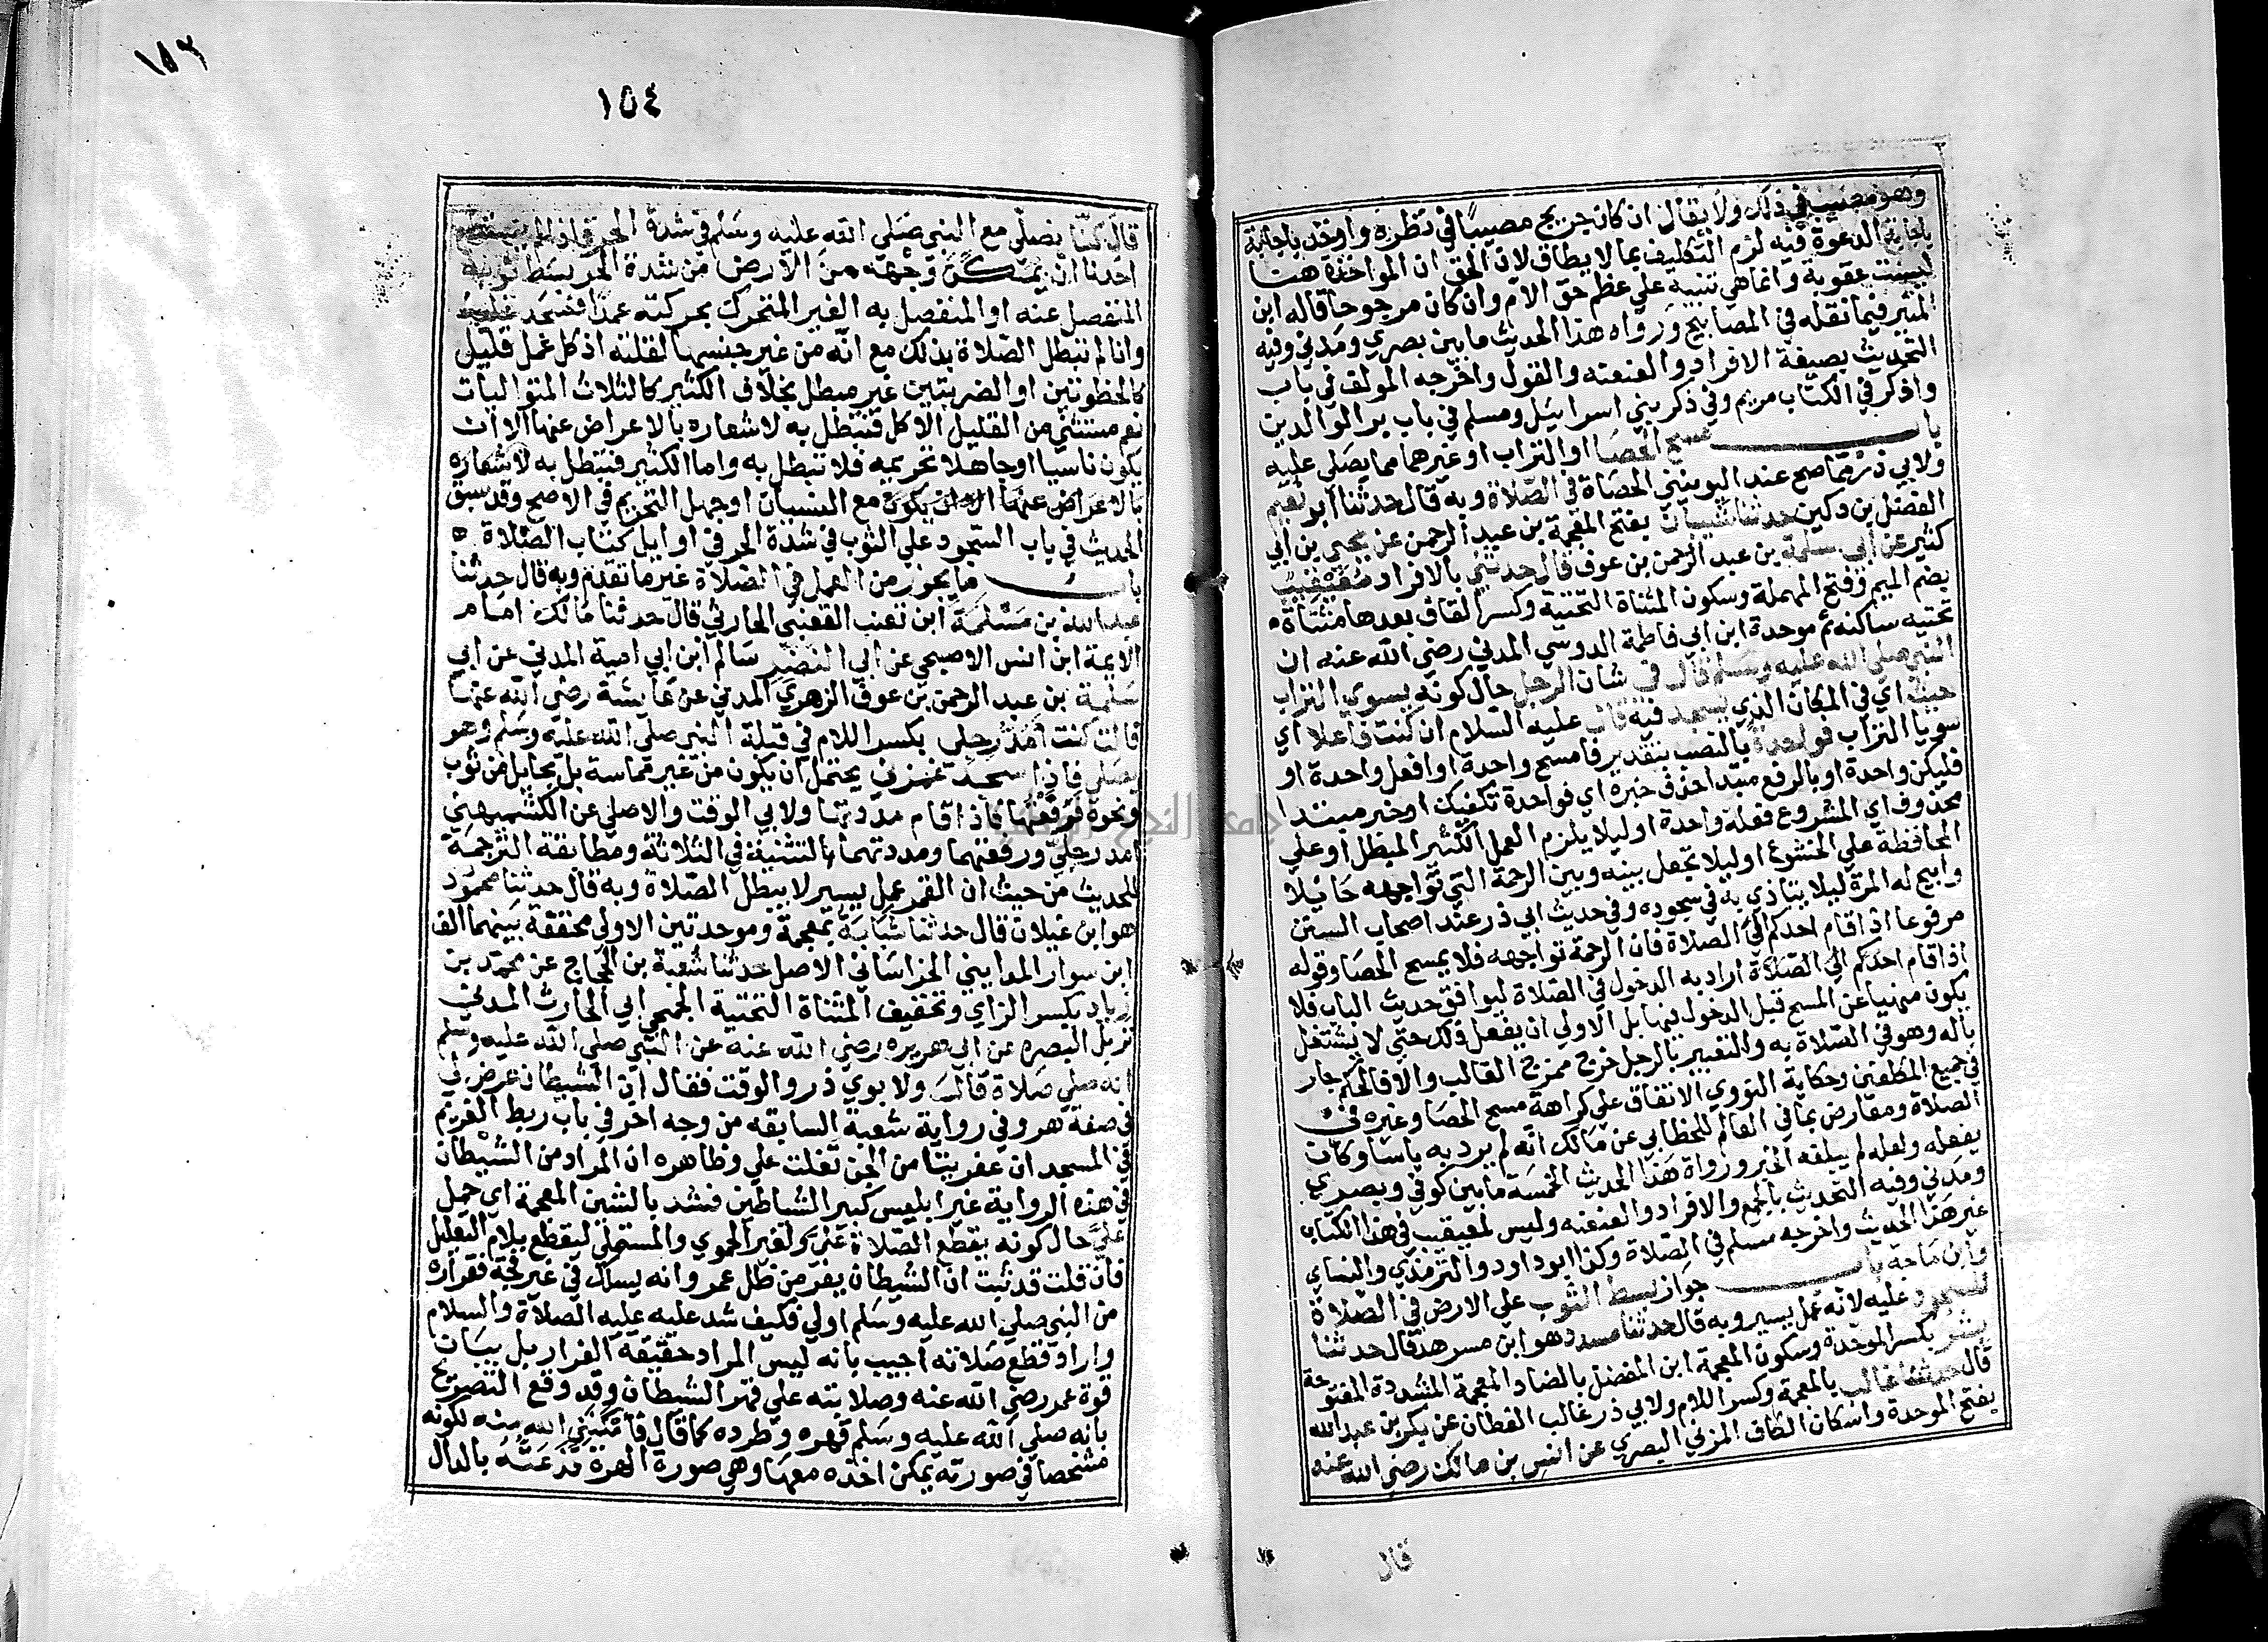 وهو مصيب في ذلك ولا يقال ان كان جريج مصيبا في نظره واوخذ باجابة
الدعوة فيه لزم التكليف بما لا يطاق لان الحق ان المواخذة هنا
ليست عقوبة وانما هي تنبيه علي عظم حق الام وان كان مرجوحا قاله ابن
المنير فيما نقله في المصابيح ورواه هذا الحديث ما بين بصري ومدني وفيه
التحديث بصيغة الافراد والعنعنه والقول واخرجه المولف في باب
واذكر في الكتاب مريم وفي ذكر بني اسرائيل ومسلم في باب بر الوالدين
باب مسح الحصا او التراب او غيرهما مما يصلي عليه
ولابي ذر مما صح عند اليونيني الحصاة في الصلاة وبه قال حدثنا ابو نعيم
الفضل بن دكين حدثنا شيبان بفتح المعجمة بن عبد الرحمن عن يحيي بن ابي
كثير عن ابي سلمة بن عبد الرحمن بن عوف قال حدثني بالافراد معيقيب
بضم الميم وفتح المهملة وسكون المثناة التحتية وكسر القاف بعدها مثناة
تحتيه ساكنه ثم موحدة ابن ابي فاطمة الدوسي المدني رضي الله عنه ان
النبي صلي الله عليه وسلم قال في شان الرجل حال كونه يسوي التراب
حيث اي في المكان الذي يسجد فيه قال عليه السلام ان كنت فاعلا اي
سويا التراب فواحدة بالنصب بتقدير فامسح واحدة او افعل واحدة او
فليكن واحدة او بالرفع مبتدا حذف خبره اي فواحدة تكفيك او خبر مبتدا
محذوف اي المشروع فعلة واحدة او ليلا يلزم العمل الكثير المبطل او علي
المحافظة علي الخشوع او ليلا تجعل بينه وبين الرحمة التي تواجهه حايلا
وابيح له المرة ليلا يتاذي به في سجوده وفي حديث ابي ذر عند اصحاب السنن
مرفوعا اذا قام احدكم الي الصلاة فان الرحمة تواجهه فلا يمسح الحصا وقوله
اذا قام احدكم الي الصلاة اراد به الدخول في الصلاة ليوافق حديث الباب فلا
يكون منهيا عن المسح قبل الدخول فيها بل الاولي ان يفعل ذلك حتي لا يشتغل
باله وهو في الصلاة به والتعبير بالرجل خرج مخرج الغالب والا فالحكم جار
في جميع المكلفين وحكاية النووي الاتفاق علي كراهة مسح الحصا وغيره في
الصلاة ومعارض بما في المعالم للخطابي عن مالك انه لم يرد به باسا وكان
يفعله ولعله لم يبلغه الخبر ورواة هذا الحديث الخمسة ما بين كوفي وبصري
ومدني وفيه التحديث بالجمع والافراد والعنعنه وليس لمعيقيب في هذا الكتاب
غير هذا الحديث واخرجه مسلم في الصلاة وكذا ابو داود والترمذي والنساي
وابن ماجة باب جواز بسط الثوب علي الارض في الصلاة
للسجود عليه لانه عمل يسير وبه قال حدثنا مسدد هو ابن مسرهد قال حدثنا
بشر بكسر الموحدة وسكون المعجمة ابن المفضل بالضاد المعجمة المشددة المفتوحة
قال حدثنا غالب بالمعجمة وكسر اللام ولابي ذر غالب القطان عن بكر بن عبد الله
بفتح الموحدة واسكان الكاف المزني البصري عن انس بن مالك رضي الله عنه
قال
١٥٣
١٥٤
قال كنا نصلي مع النبي صلي الله عليه وسلم في شدة الحر فاذا لم يستطع
احدنا ان يمكن وجهه من الارض من شدة الحر بسط ثوبه
المنفصل عنه او المتصل به الغير المتحرك بحركته عمدا فسجد عليه
وانا لم تبطل الصلاة بذلك مع انه من غير جنسها لقلته اذ كل عمل قليل
كالخطوتين او الضربتين غير مبطل بخلاف الكثير كالثلاث المتواليات
نعم مستثني من القليل الاكل فتبطل به لاشعاره بالاعراض عنها الا ان
يكون ناسيا او جاهلا تحريمه فلا تبطل به واما الكثير فتبطل به لاشعاره
بالاعراض عنها الا ان يكون مع النسيان او جهل التحريم في الاصح وقد سبق
الحديث في باب السجود علي الثوب في شدة الحر في اوايل كتاب الصلاة ه
باب ما يجوز من العمل في الصلاة غير ما تقدم وبه قال حدثنا
عبد الله بن مسلمة ابن قعنب القعنبي الحارثي قال حدثنا مالك امام
الايمة ابن انس الاصبحي عن ابي النضر سالم ابن ابي امية المدني عن ابي
سلمة بن عبد الرحمن بن عوف الزهري المدني عن عايشة رضي الله عنها
قالت كنت امد رجلي بكسر اللام في قبلة النبي صلي الله عليه وسلم وهو
يصلي فاذا سجد غمزني يحتمل ان يكون من غير مماسة بل بحايل من ثوب
ونحوه فرفعتها فاذا قام مددتها ولابي الوقت والاصلي عن الكشميهني
امد رجلي ورفعتهما ومددتهما بالتثنية في الثلاثة ومطابقة الترجمة
للحديث من حيث ان الغمز عمل يسير لا يبطل الصلاة وبه قال حدثنا محمود
هو ابن غيلان قال حدثنا شبابة بمعجمة وموحدتين الاولي مخففة بينهما الف
ابن سوار المدايني الخراساني الاصل حدثنا شعبة بن الحجاج عن محمد بن
زياد بكسر الزاي وتخفيف المثناة التحتية الجمحي ابي الحارث المدني
نزيل البصره عن ابي هريره رضي الله عنه عن النبي صلي الله عليه وسلم
انه صلي صلاة قال ولابوي ذر والوقت فقال ان الشيطان عرض لي
في صفة هر وفي رواية شعبة السابقه من وجه اخر في باب ربط الغريم
في المسجد ان عفريتا من الجن تفلت علي وظاهره ان المراد من الشيطان
في هذه الرواية غير ابليس كبير الشياطين فشد بالشين المعجمة اي حمل
علي حال كونه يقطع الصلاة علي ولغير الحموي والمستملي ليقطع بلام التعليل
فان قلت قد ثبت ان الشيطان يفر من ظل عمر وانه يسلك في غير فجه ففراره
من النبي صلي الله عليه وسلم اولي فكيف شد عليه عليه الصلاة والسلام
واراد قطع صلاته اجيب بانه ليس المراد حقيقة الفرار بل بيان
قوة عمر رضي الله عنه وصلابته علي قهر الشيطان وقد وقع التصريح
بانه صلي الله عليه وسلم قهره وطرده كما قال فامكنني الله منه لكونه
مشخصا في صورته يمكن اخذه معها وهي صورة الهرة فذعته بالذال